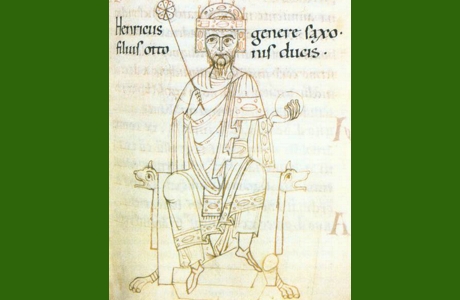 Henricus
filius otto
genere saxo·
nis ducis·